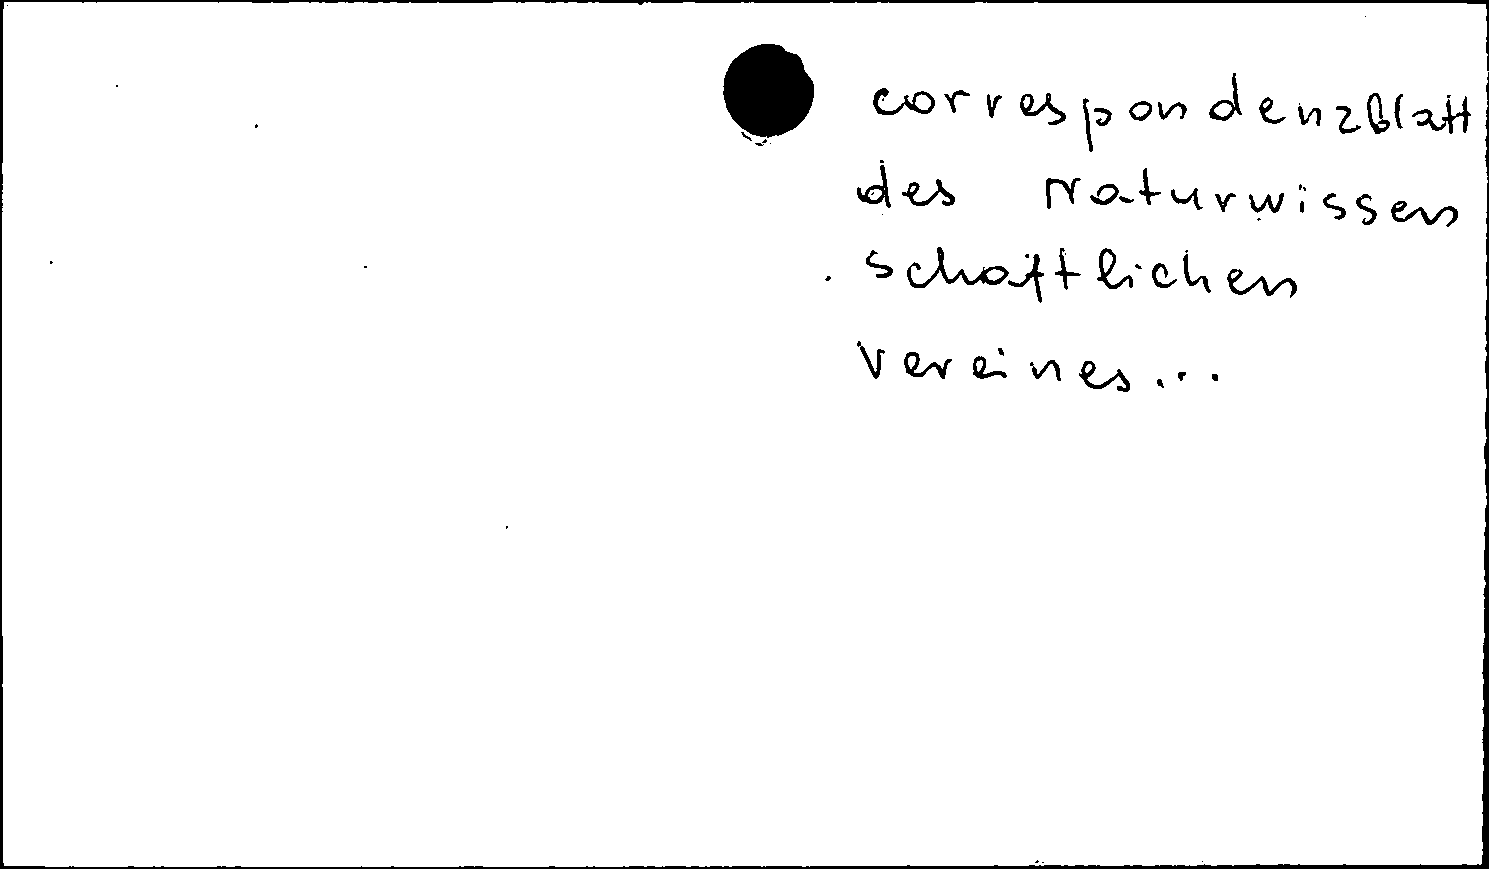 correspondenzblatt
des Naturwissen
schaftlichen
Vereines...